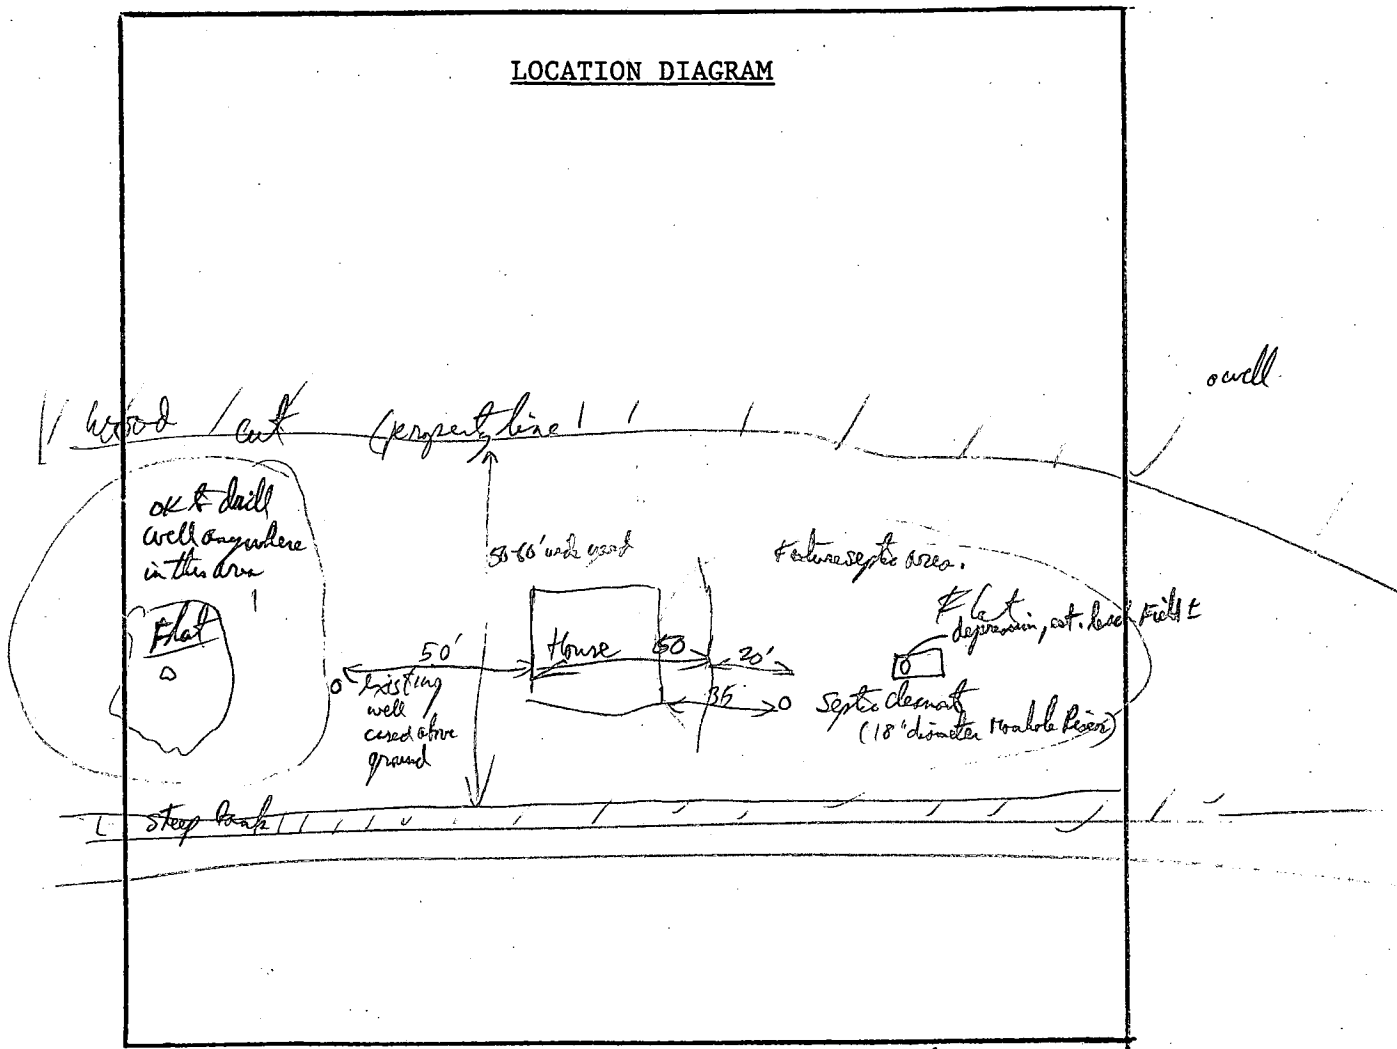 LOCATION DIAGRAM
o well
wood cut (property line
OK to drill
well anywhere
in this area
Flat
50-60' wide
Future septic area.
Flat
depression, leach field ±
50'
House
50
20'
35'
Existing
well
cased above
ground
Septic cleanout
(18" diameter Manhole Riser)
Steep bank